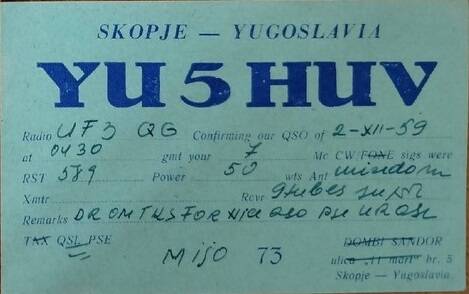 SKOPJE — YUGOSLAVIA
YU5HUV
Radio UF3 QG Confirming our QSO of 2-XII-59
at 0430 gmt your 7 Mc CW FONE sigs were
RST 589 Power 50 wts Ant windom
Xmtr Rcvr 9tubes super
Remarks DR OM TKS FOR
TNX QSL PSE
Mijo 73 DOMBI SANDOR
ulica „11 mart" br. 5
Skopje — Yugoslavia.